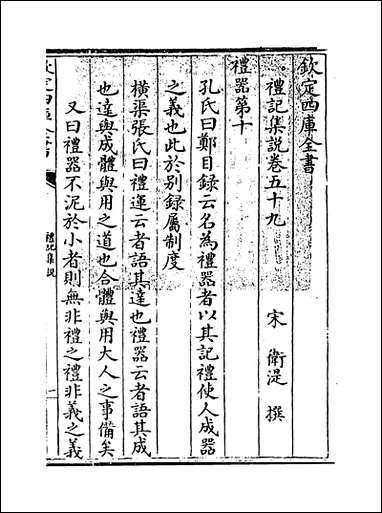 欽定四庫全書
禮記集說卷五十九
宋 衛湜 撰
禮器第十
孔氏曰鄭目録云名為禮器者以其記禮使人成器
之義也此於别録屬制度
橫渠張氏曰禮運云者語其達也禮器云者語其成
也達與成體與用之道也合體與用大人之事備矣
又曰禮器不泥於小者則無非禮之禮非義之義
欽定四庫全書
禮記集說
一